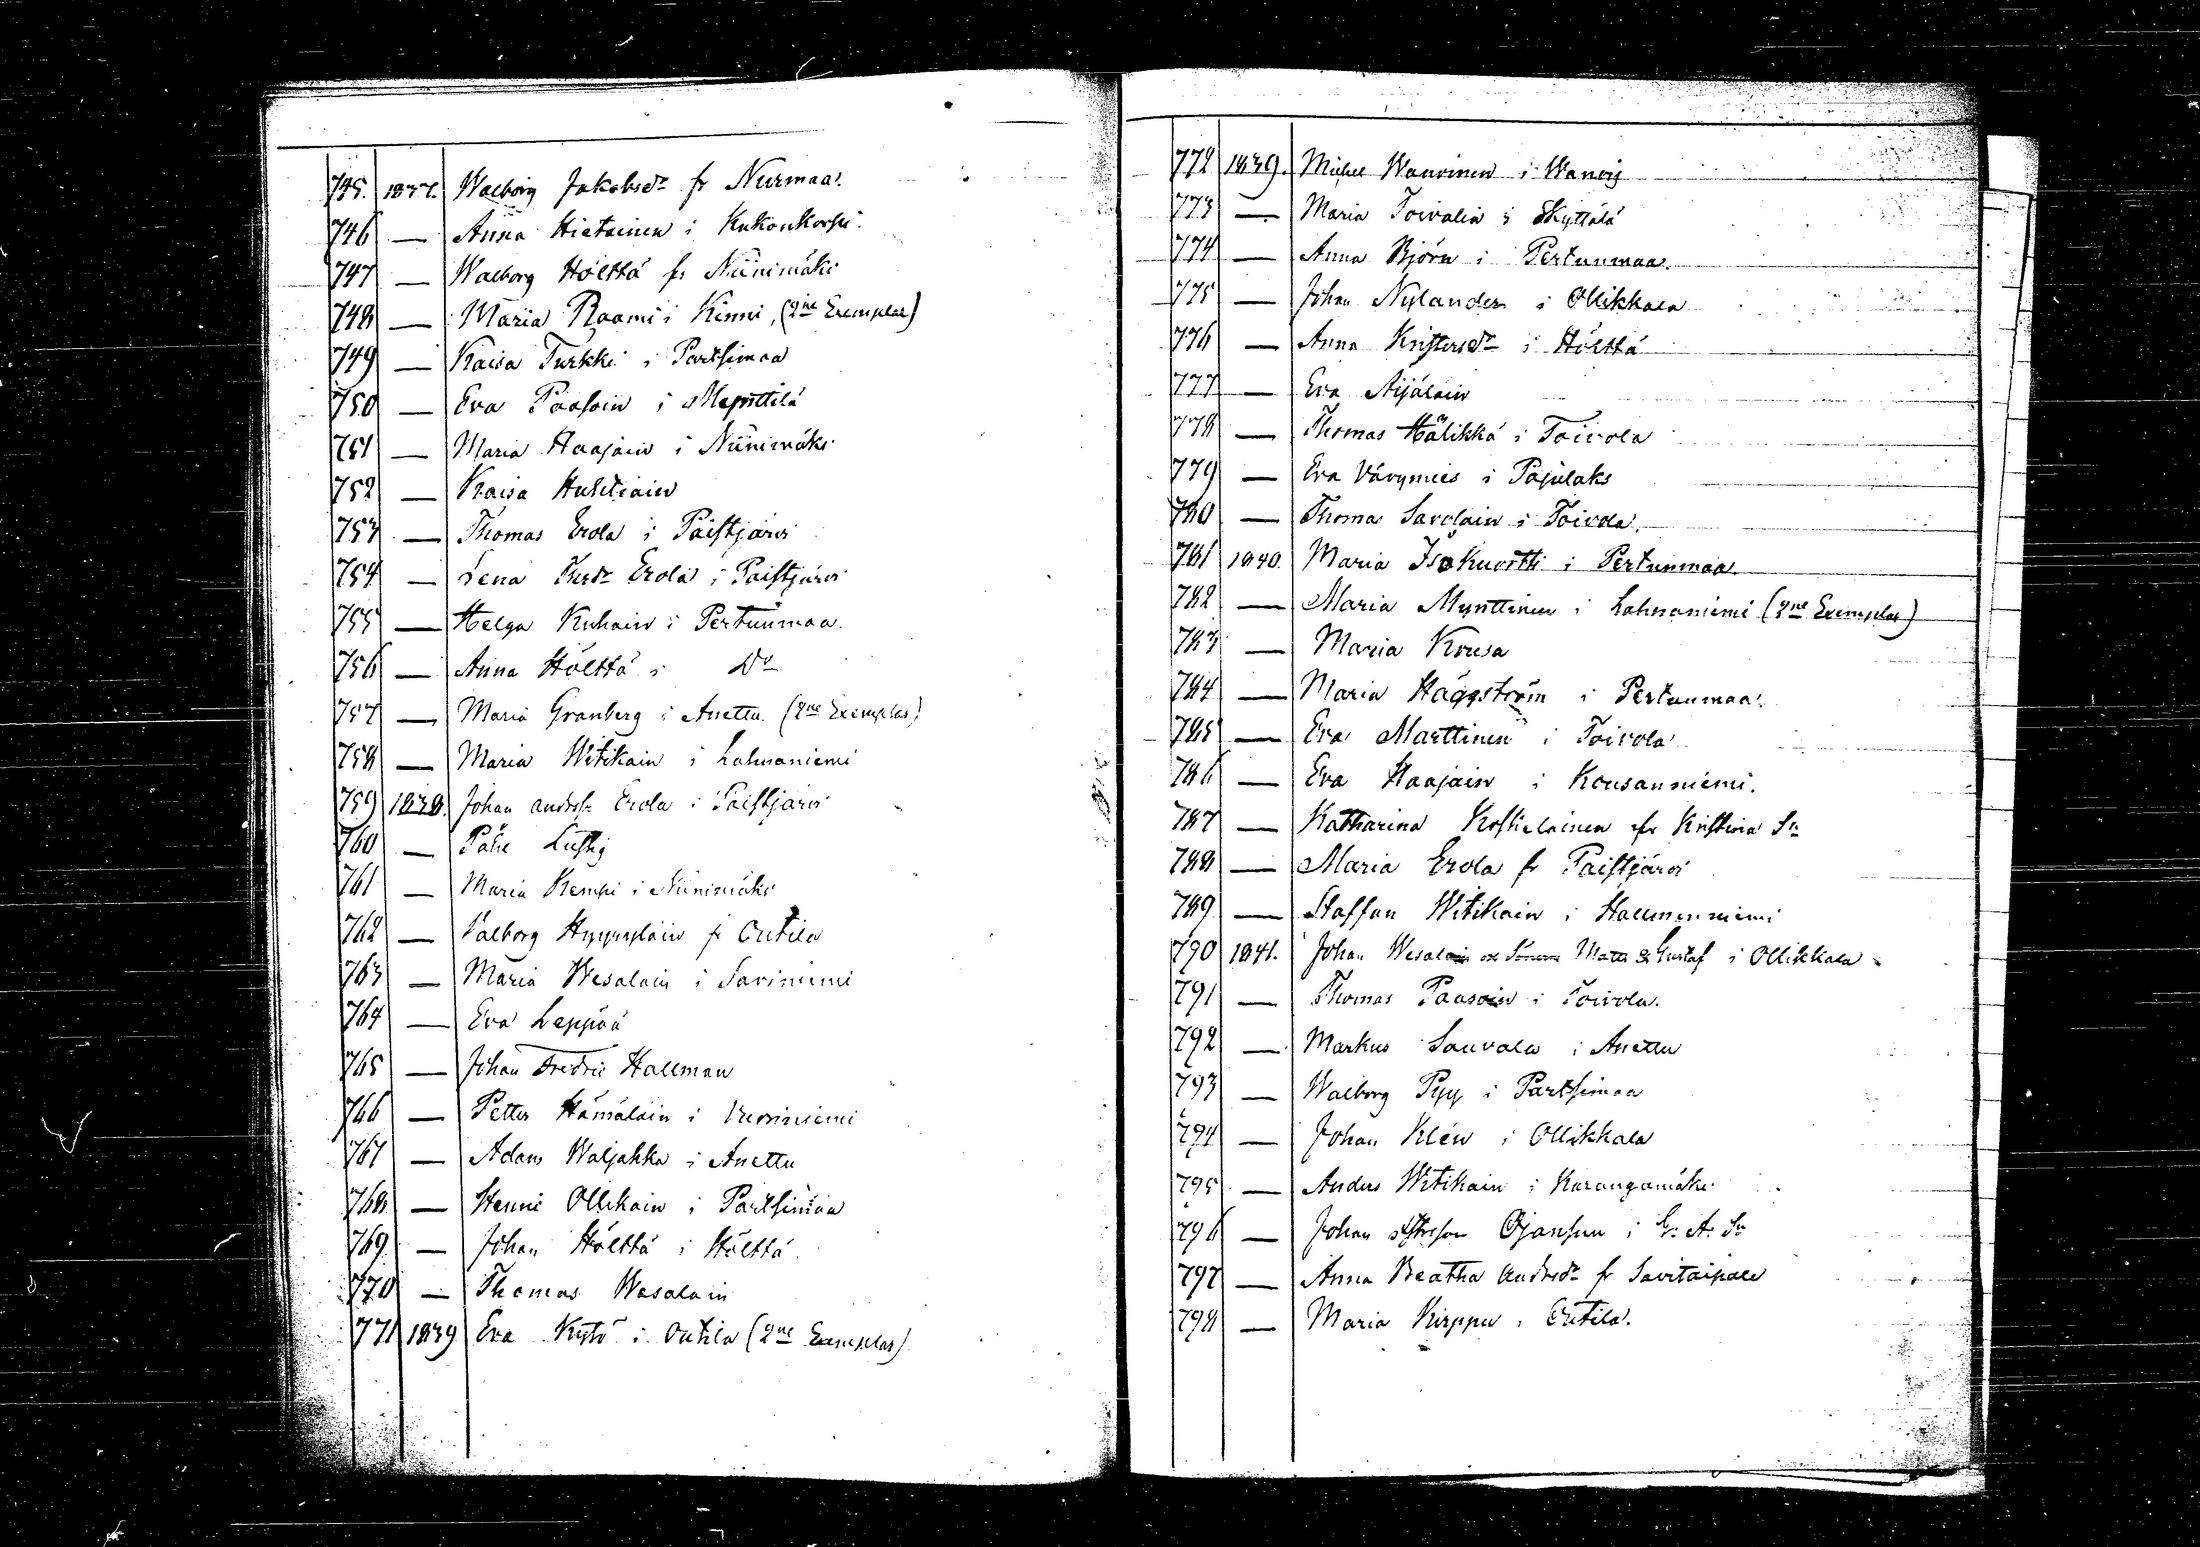 745. 1837. Walborg Jakobsdr fr Nurmaa.
746 — Anna Hietainen i Kukonkorpi.
747 — Walborg Hölttä fr Niinimäki
748 — Maria Raami i Kinni, (2ne Exemplar)
749 — Kaisa Turkki i Partsimaa
750 — Eva Paasoin i Mynttilä
751 — Maria Haajain i Niinimäki
752 — Kaisa
753 — Thomas Erola i Paistjärvi
754 — Lena Erola i Paistjärvi
755 — Helga Kuhain i Pertunmaa.
756 — Anna Hölttä i Do
757 — Maria Granberg i Anettu (2ne Exemplar)
758 — Maria Witikain i Lahnaniemi
759 1838. Johan Andrss. Erola i Paistjärvi
760 — Lustig
761 — Maria Kempi i Niinimäki
762 — Valborg Hyyryläin fr Outila
763 — Maria Wesalain i Saviniemi
764 — Eva Leppää
765 — Johan Fredric Hallman
766 — Petter Hämäläin i
767 — Adam Waljakka i Anettu
768 — Henric Ollikain i Partsimaa
769 — Johan Hölttä i Hölttä
770 — Thomas Wesalain
771 1839 Eva Kytö i Outila (2ne Exemplar)
772 1839. Michel Wanoinen i
773 — Maria Toivalin i Skyttälä
774 — Anna Björn i Pertunmaa.
775 — Johan Nylander i Ollikkala
776 — Anna Kristersdr i Hölttä
777 — Eva Äijäläin
778 — Thomas Hälikkä i Toivola
779 — Eva Värymies i Pajulaks
780 — Thomas Savolain i Toivola.
781 1840. Maria Isokuortti i Pertunmaa.
782 — Maria Mynttinen i Lahnaniemi (2ne Exemplar)
783 — Maria Krusa
784 — Maria Häggström i Pertunmaa.
785 — Eva Marttinen i Toivola
786 — Eva Haajain i Kousanniemi.
787 — Katharina Koskelainen fr Kristina Sn
788 — Maria Erola fr Paistjärvi
789 — Staffan Witikain i Hallmanniemi
790 1841. Johan Wesalain och Sönerne Matts & Gustaf i Ollikkala
791 — Thomas Paasoin i Toivola.
792 — Markus Sauvala i Anettu
793 — Walborg Pyy i Partsimaa
794 — Johan Klén i Ollikkala
795 — Anders Witikain i Karangamäki
796 — Johan Ojansuu i
797 — Anna Beatha Andrsdr fr Savitaipale
798 — Maria Kirppu i Outila.